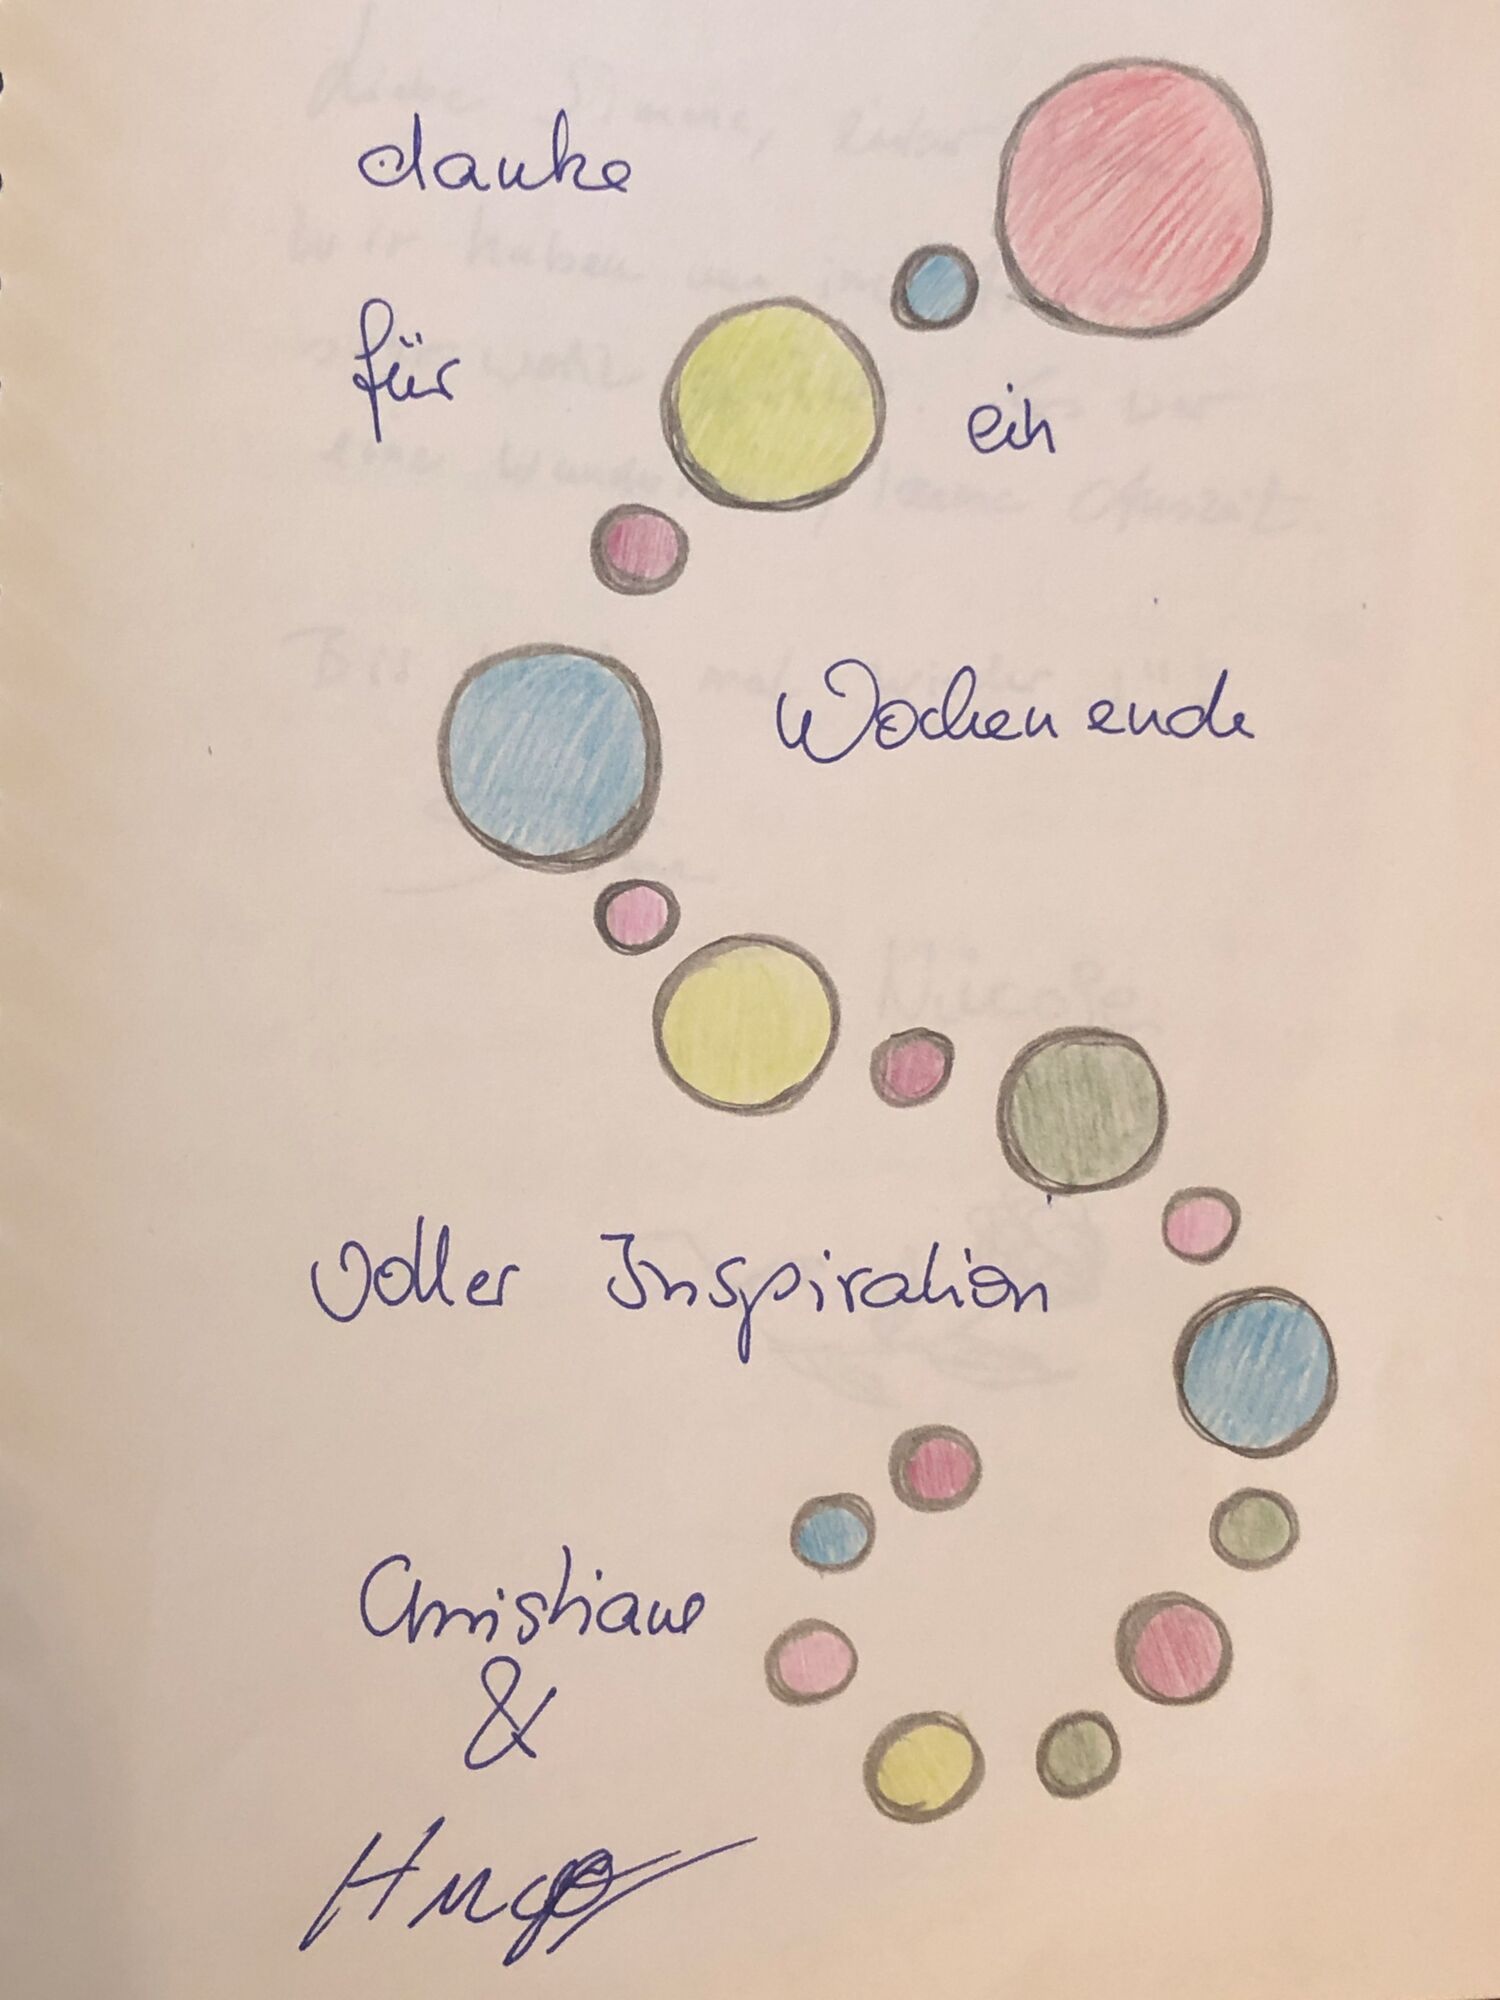 danke
für ein
Wochenende
voller Inspiration
Christiane
&
Hugo